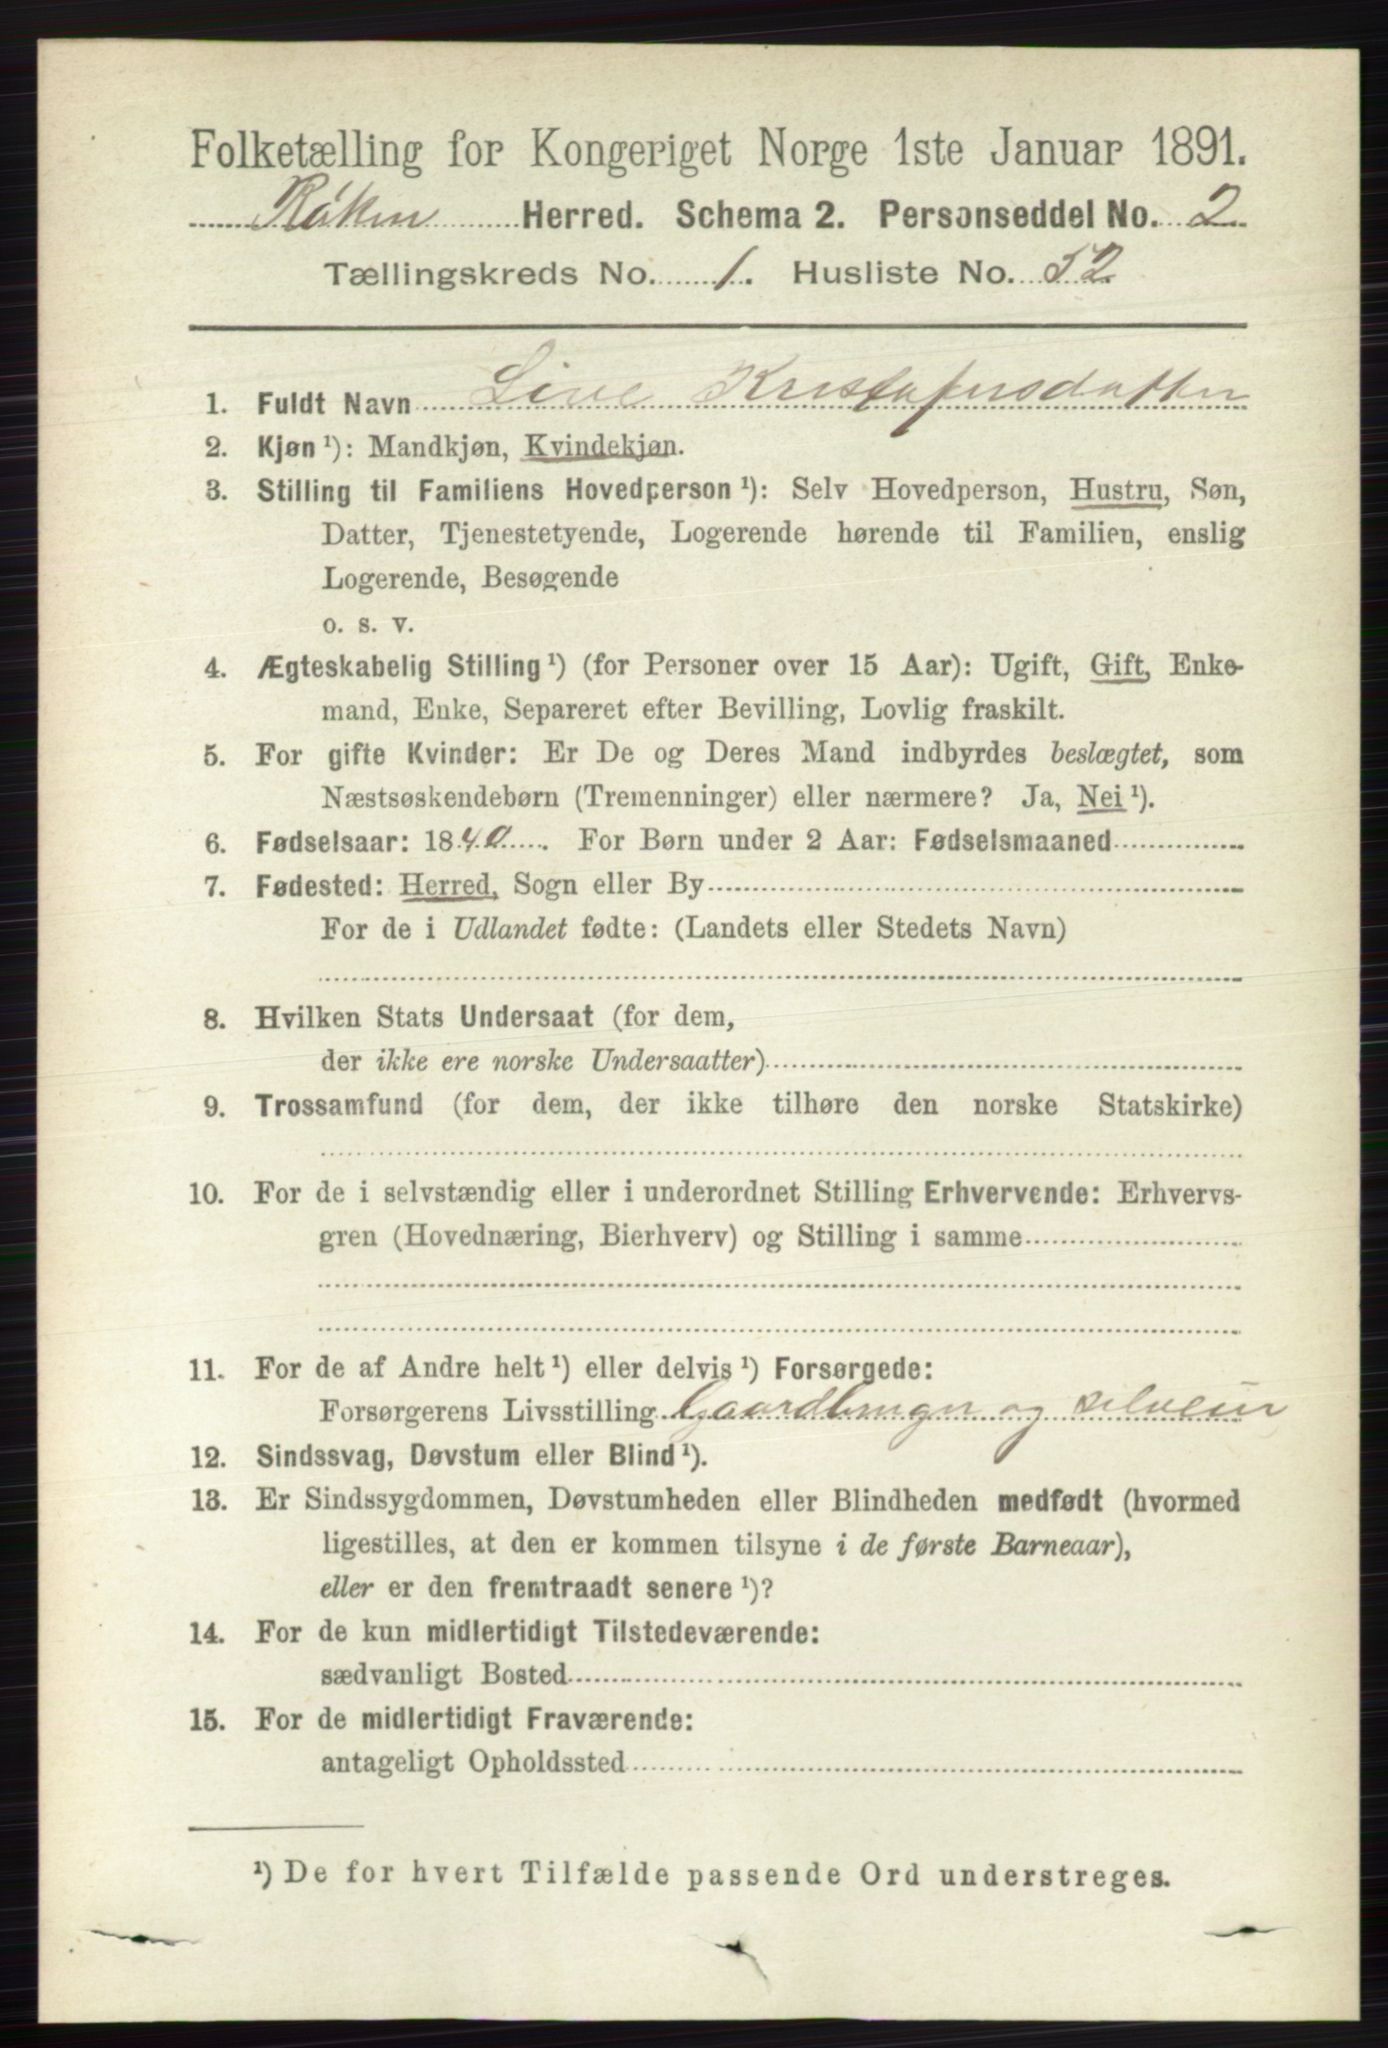 Folketælling for Kongeriget Norge 1ste Januar 1891.
Røken Herred. Schema 2. Personseddel No. 2
Tællingskreds No. 1. Husliste No. 52
1. Fuldt Navn Live Kristofersdatter
2. Kjøn ¹): Mandkjøn, Kvindekjøn.
3. Stilling til Familiens Hovedperson ¹): Selv Hovedperson, Hustru, Søn,
Datter, Tjenestetyende, Logerende hørende til Familien, enslig
Logerende, Besøgende
o. s. v.
4. Ægteskabelig Stilling ¹) (for Personer over 15 Aar): Ugift, Gift, Enke-
mand, Enke, Separeret efter Bevilling, Lovlig fraskilt.
5. For gifte Kvinder: Er De og Deres Mand indbyrdes beslægtet, som
Næstsøskendebørn (Tremenninger) eller nærmere? Ja, Nei ¹).
6. Fødselsaar: 1840. For Børn under 2 Aar: Fødselsmaaned
7. Fødested: Herred, Sogn eller By
For de i Udlandet fødte: (Landets eller Stedets Navn)
8. Hvilken Stats Undersaat (for dem,
der ikke ere norske Undersaatter)
9. Trossamfund (for dem, der ikke tilhøre den norske Statskirke)
10. For de i selvstændig eller i underordnet Stilling Erhvervende: Erhvervs-
gren (Hovednæring, Bierhverv) og Stilling i samme
11. For de af Andre helt ¹) eller delvis ¹) Forsørgede:
Forsørgerens Livsstilling Gaardbruger og selveier
12. Sindssvag, Døvstum eller Blind ¹).
13. Er Sindssygdommen, Døvstumheden eller Blindheden medfødt (hvormed
ligestilles, at den er kommen tilsyne i de første Barneaar),
eller er den fremtraadt senere ¹)?
14. For de kun midlertidigt Tilstedeværende:
sædvanligt Bosted
15. For de midlertidigt Fraværende:
antageligt Opholdssted
¹) De for hvert Tilfælde passende Ord understreges.